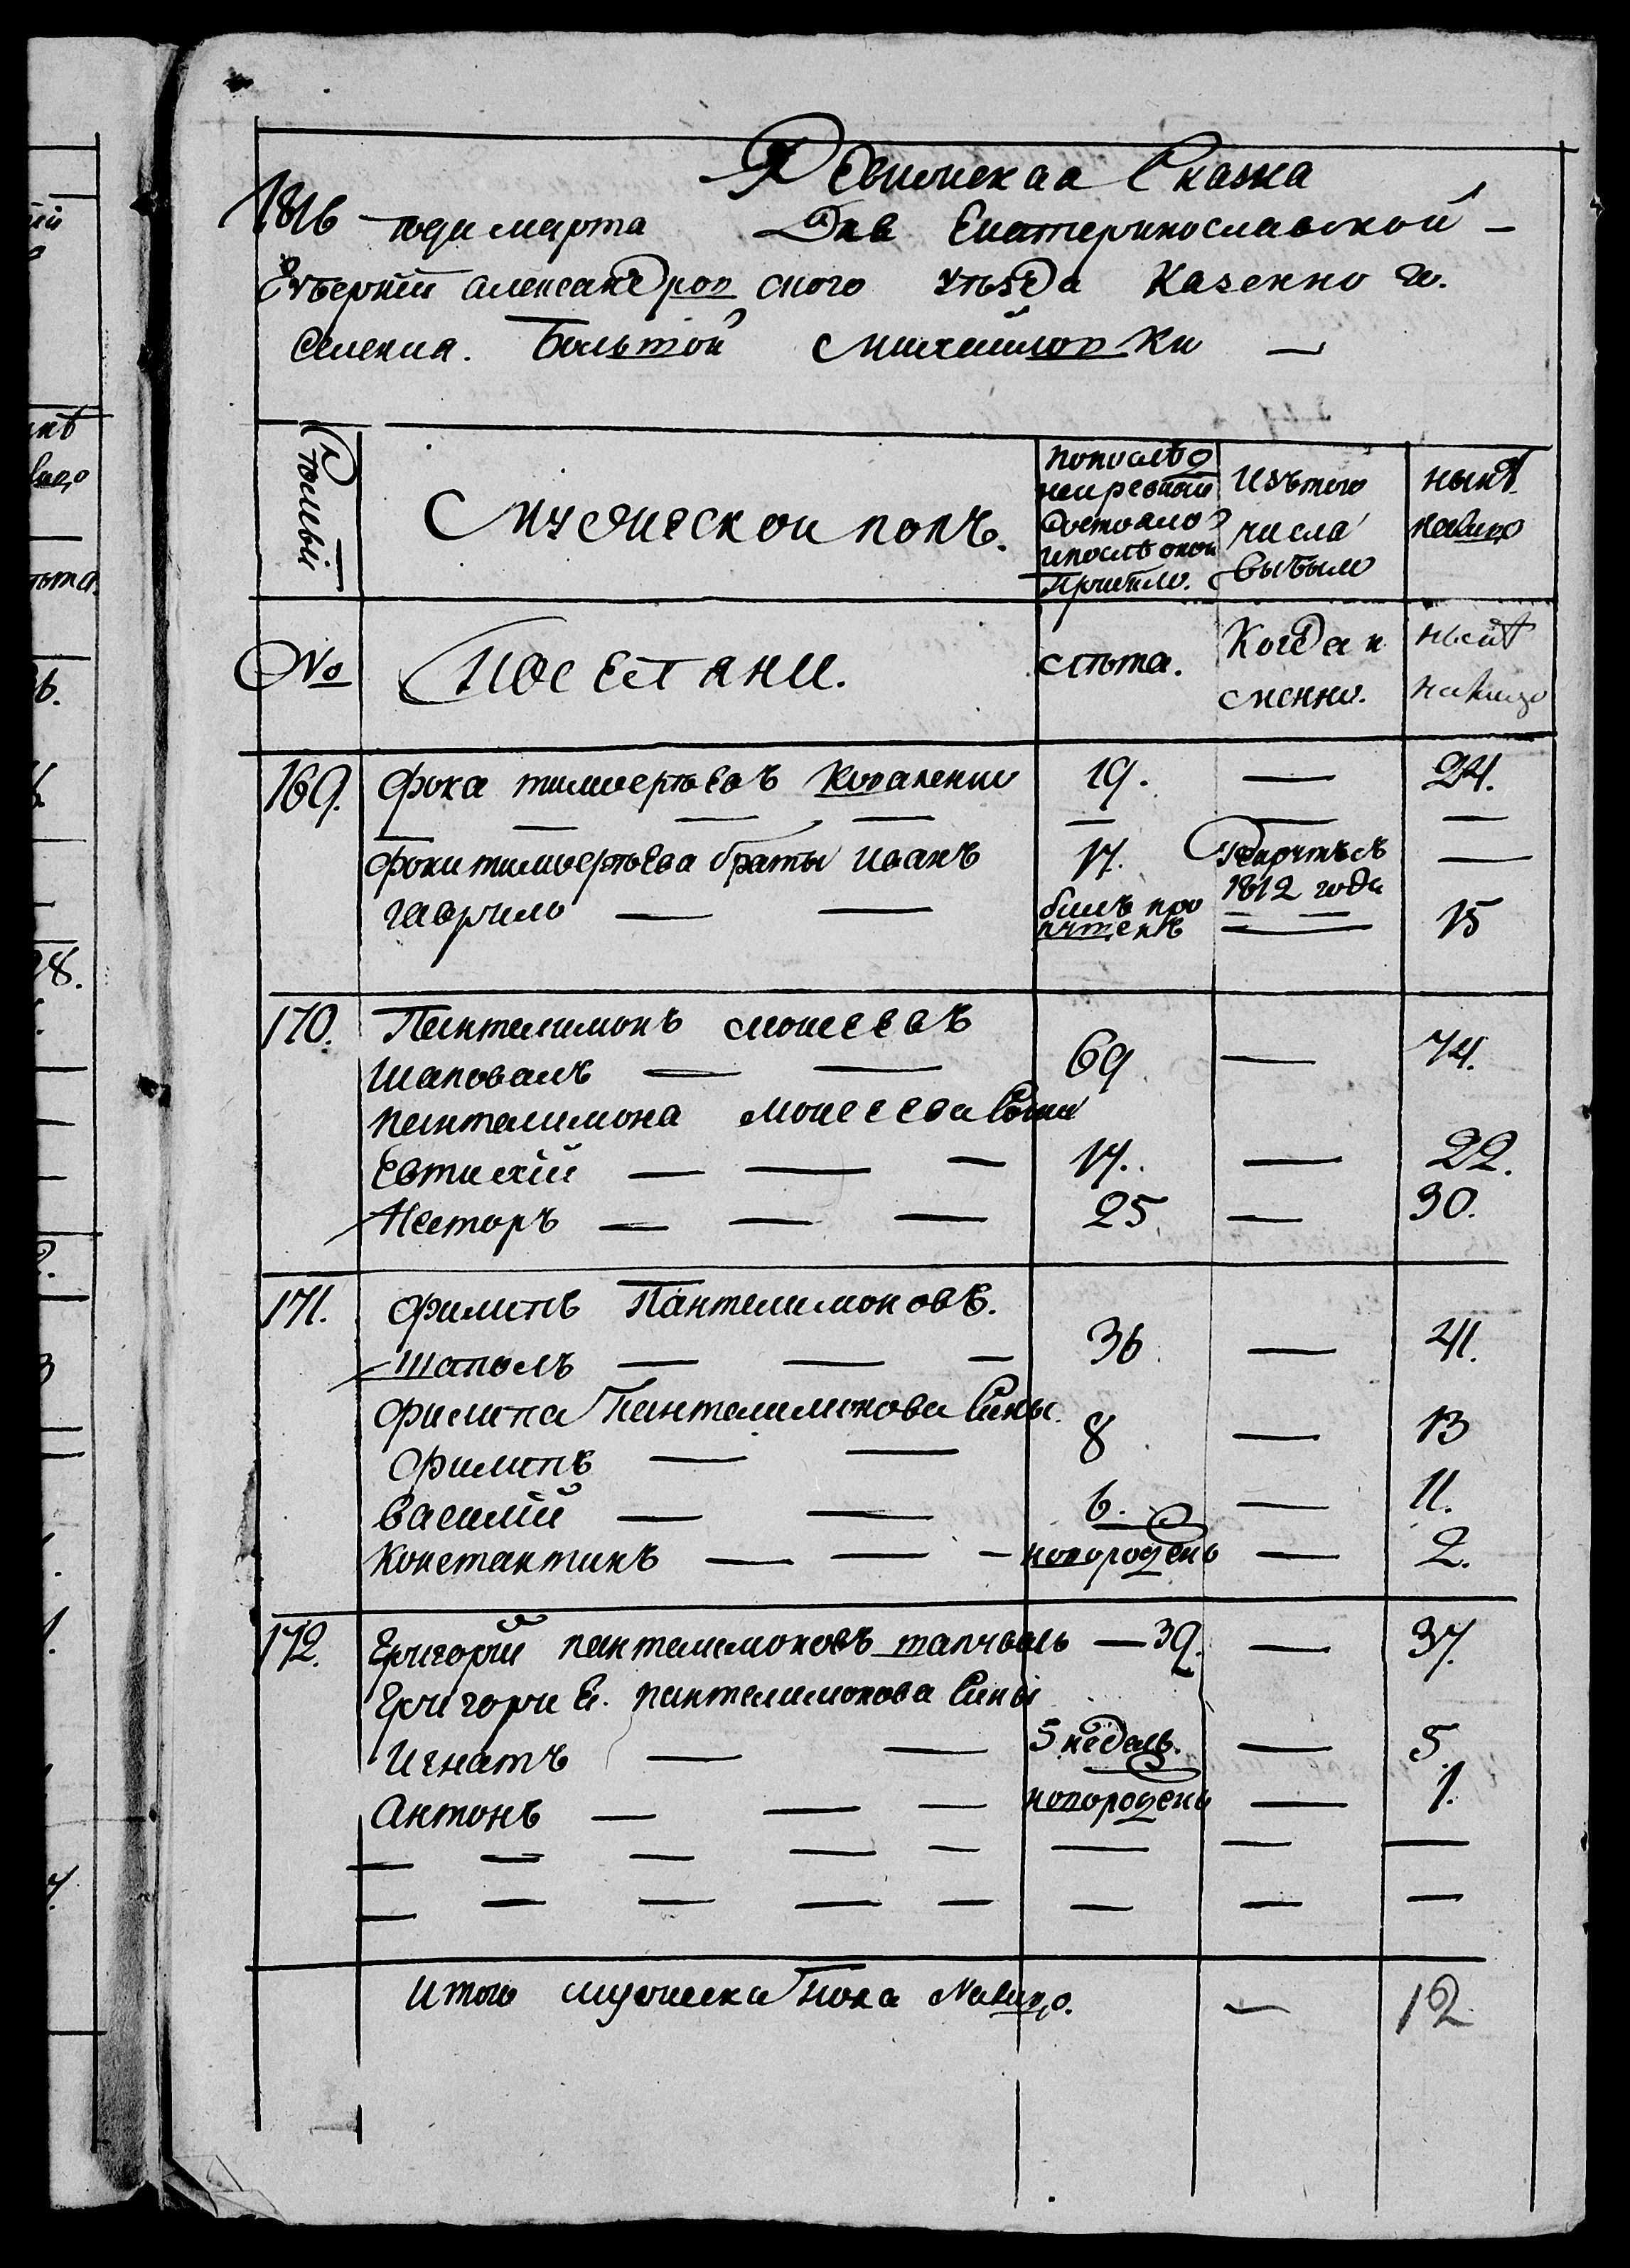 Ревижская Сказка
1816 года марта Дня Екатеринославской
Губерній александровского уѣзда Казенного
селения. Большой михайловки
Фомилы
Мужеской полъ.
По послѣд
ней ревизіи
состояло
и послѣ оной
прибыло.
Изъ того
числа
выбыло
нынѣ
налицо
№
Посестани.
Лѣта.
Когда и
менно.
нынѣ
налицо
169. фока тимоѳеевъ Коваленко 19. — 24.
фоки тимоѳеева браты иванъ 17. —
1812 года
гаврило — — былъ про 15
пущенъ
170. Пантелимонъ моисеевъ
шаповалъ — — 69 — 74.
пантелимона моисеева сыны
Евтихій — — — 17. — 22.
Несторъ — — — 25 — 30.
171. филипъ Пантелимоновъ.
шаполъ — — — 36. — 41.
филипа Пантелимонова сыны.
филипъ — — 8 — 13
василій — — 6. — 11.
константинъ — — — новорожденъ — 2.
172. Григорій пантелимоновъ шапувалъ — 32. — 37.
Григория. пантелимонова сыны
игнатъ — — 5 недель. — 5.
антонъ — — — новорожденъ — 1.
итого мужеска пола налицо. — 12